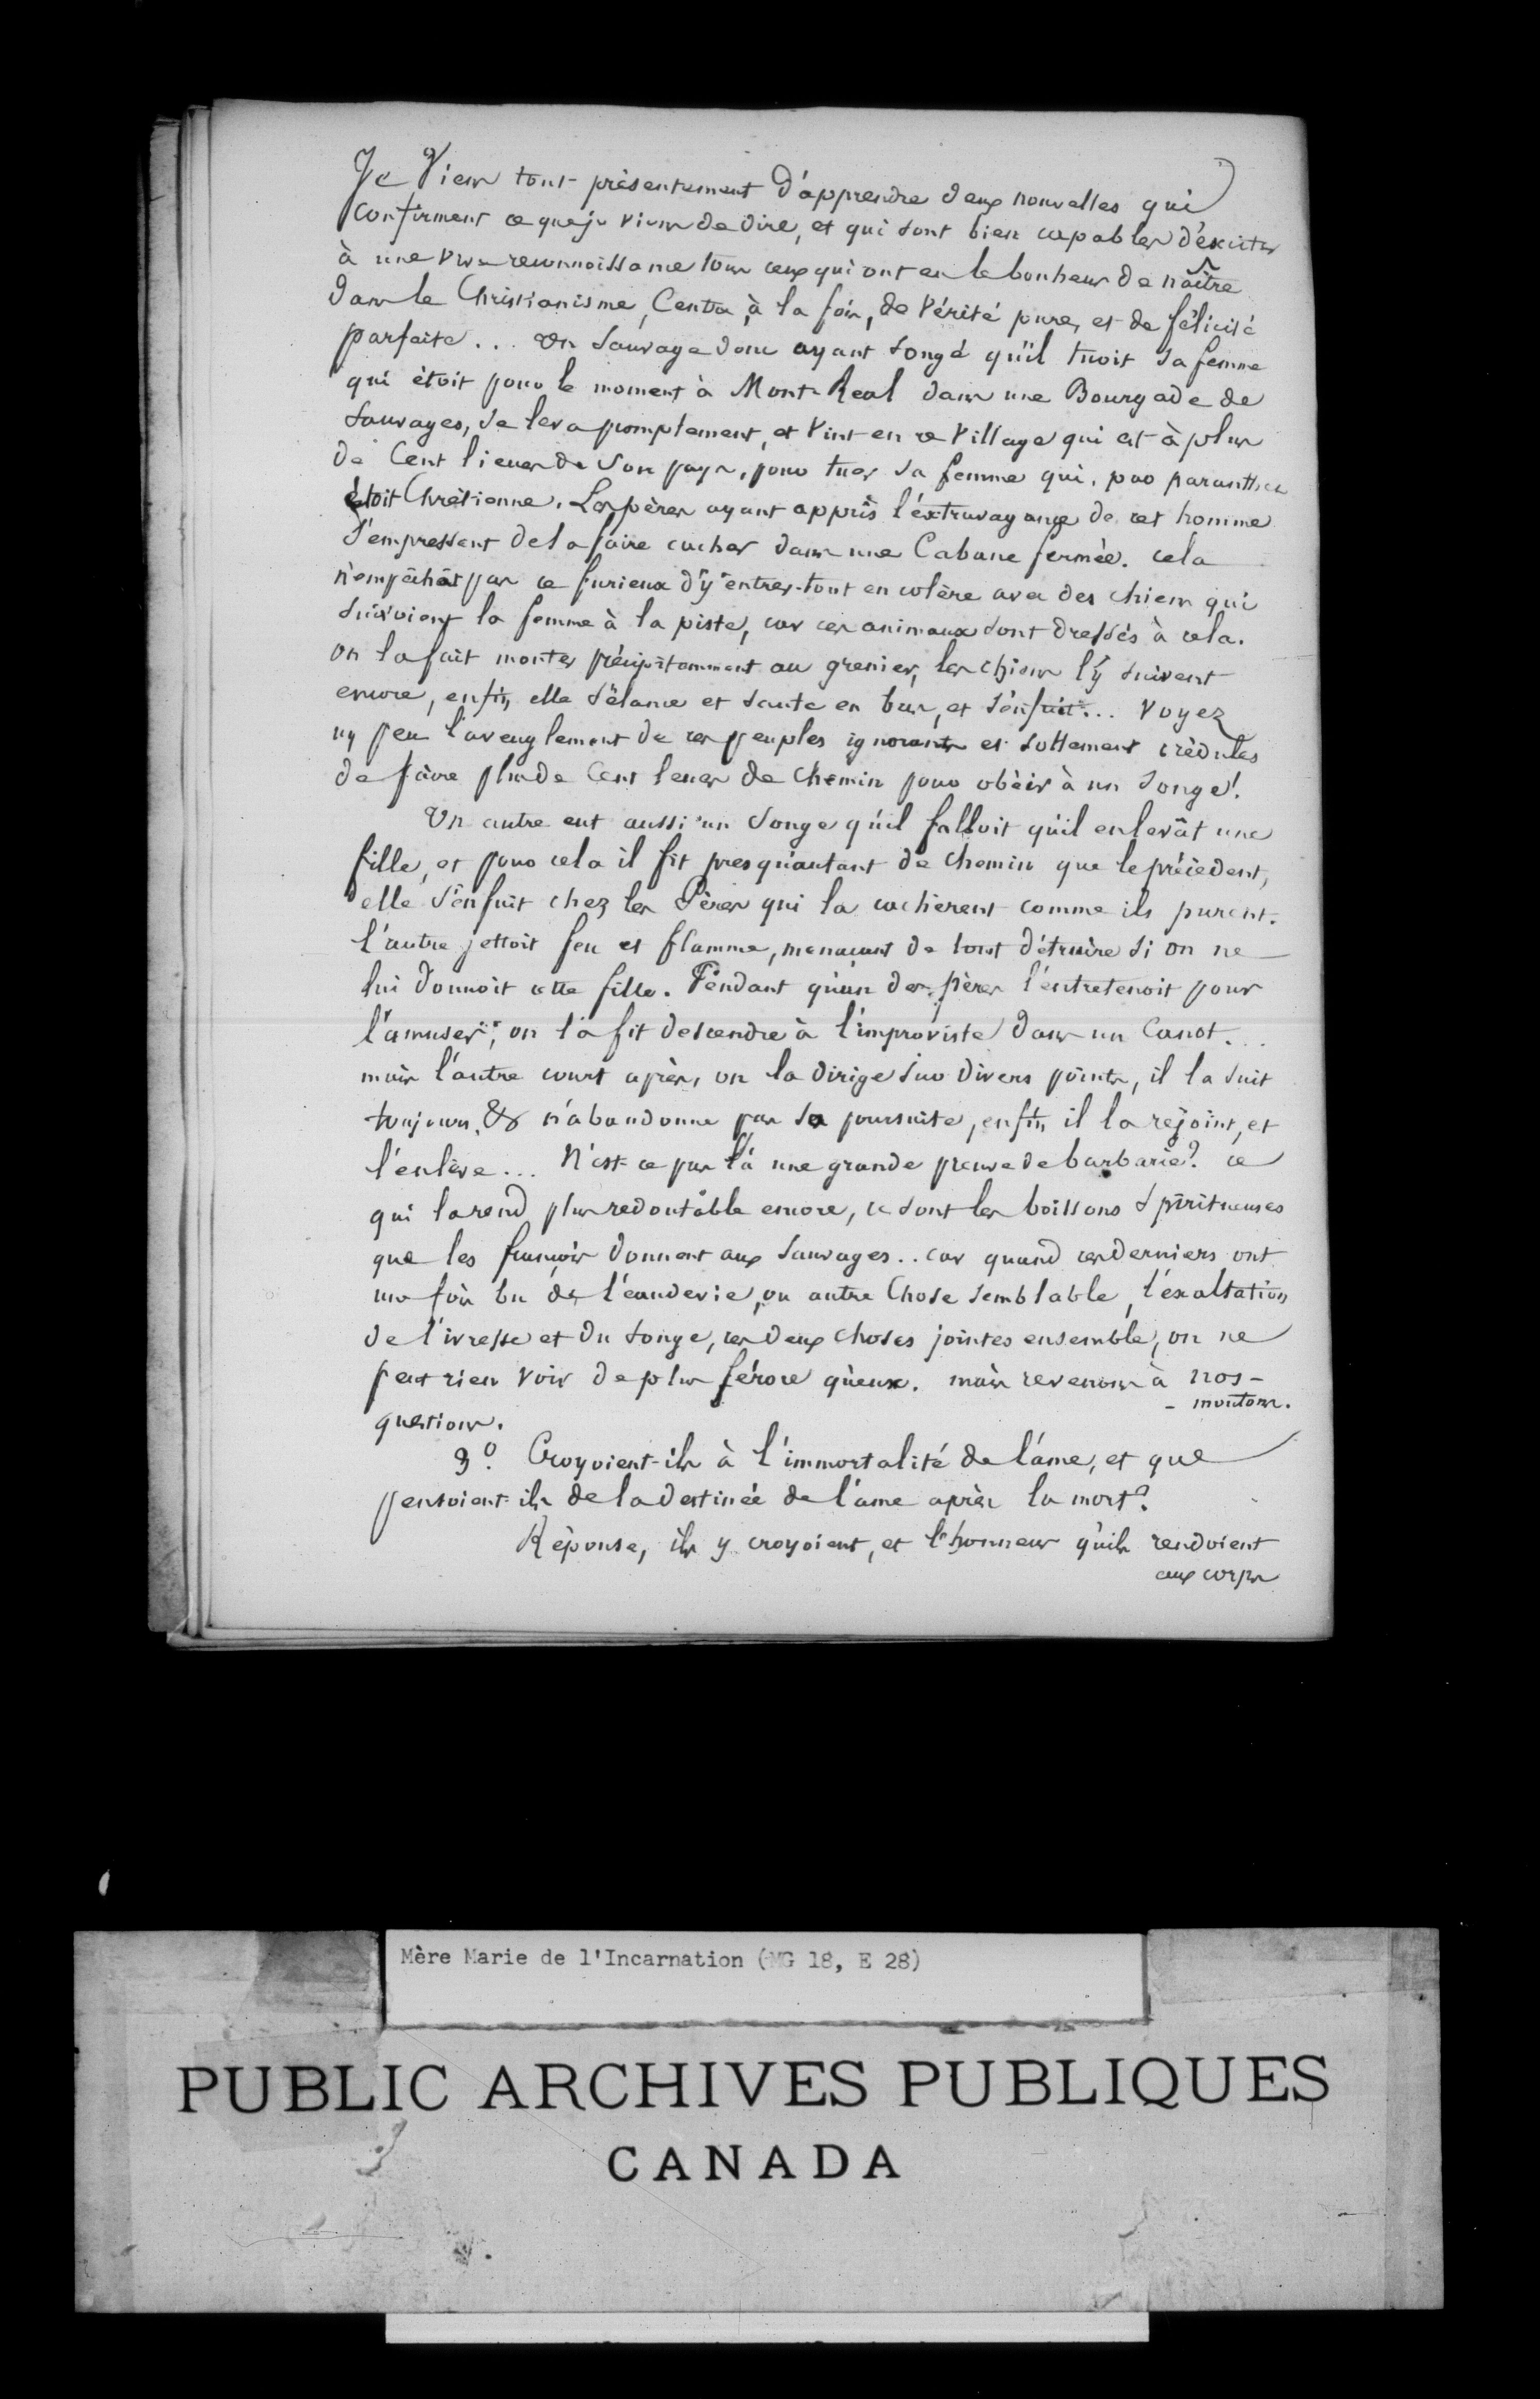 Je Viens tout-présentement d'apprendre deux nouvelles qui
confirment ce que je viens de dire, et qui sont bien capables d'exciter
à une vive reconnoissance tous ceux qui ont eu le bonheur de naître
dans le Christianisme, Centre, à la fois, de Vérité pure, et de félicité
parfaite... Un Sauvage donc ayant songé qu'il tuoit sa femme
qui étoit pour le moment à Mont-Real dans une Bourgade de
Sauvages, se leva promptement, et vint en ce Village qui est à plus
de Cent lieues de son pays, pour tuer sa femme qui, par paranthèse
étoit Chrétienne. Les pères ayant appris l'éxtravagance de cet homme
s'empressent de la faire cacher dans une Cabane fermée. cela
n'empêchât pas ce furieux d'y entrer tout en colère avec des chiens qui
suivoient la femme à la piste, car ces animaux sont dressés à cela.
on la fait monter précipitamment au grenier, les chiens l'y suivent
encore, enfin elle s'élance et saute en bas, et s'enfuit... Voyez
un peu l'aveuglement de ces peuples ignorants et sottement crédules
de faire plus de Cent lieues de chemin pour obéir à un songe!
Un autre eut aussi un songe qu'il falloit qu'il enlevât une
fille, et pour cela il fit presqu'autant de chemin que le précédent,
elle s'enfuit chez les Pères qui la cachèrent comme ils purent.
l'autre jettoit feu et flamme, menaçant de tout détruire si on ne
lui donnoit cette fille. Pendant qu'un des pères l'entretenoit pour
l'amuser, on la fit descendre à l'improviste dans un Canot...
mais l'autre court après, on la dirige sur divers points, il la suit
toujours, & n'abandonne pas sa poursuite, enfin il la rejoint, et
l'enlève... N'est-ce pas là une grande preuve de barbarie? ce
qui la rend plus redoutable encore, ce sont les boissons spiritueuses
que les françois donnent aux Sauvages.. car quand ces derniers ont
une fois bu de l'eau de vie, ou autre Chose semblable, l'éxaltation
de l'ivresse et du songe, ces deux choses jointes ensemble, on ne
peut rien voir de plus féroce qu'eux. mais revenons à nos-
- moutons.
questions.
3º. Croyoient-ils à l'immortalité de l'âme, et que
pensoient-ils de la destinée de l'ame après la mort?
Réponse, ils y croyoient, et l'honneur qu'ils rendoient
aux corps
Mère Marie de l'Incarnation (MG 18, E 28)
PUBLIC ARCHIVES PUBLIQUES
CANADA